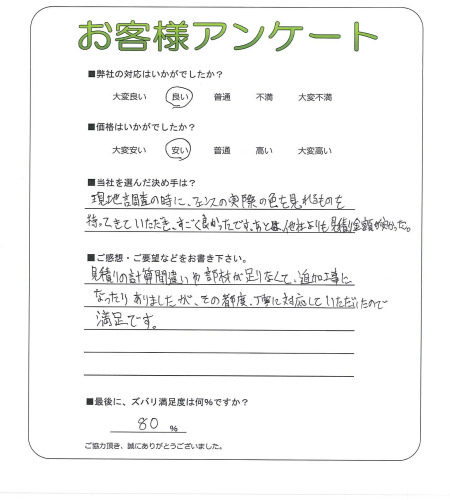 お客様アンケート
■弊社の対応はいかがでしたか？
大変良い 良い 普通 不満 大変不満
■価格はいかがでしたか？
大変安い 安い 普通 高い 大変高い
■当社を選んだ決め手は？
現地調査の時に、フェンスの実際の色を見れるものを
持ってきていただき、すごく良かったです。あとは、他社よりも見積り金額が安かった。
■ご感想・ご要望などをお書き下さい。
見積りの計算間違いや部材が足りなくて、追加工事に
なったりありましたが、その都度、丁寧に対応していただいたので
満足です。
■最後に、ズバリ満足度は何％ですか？
80 ％
ご協力頂き、誠にありがとうございました。